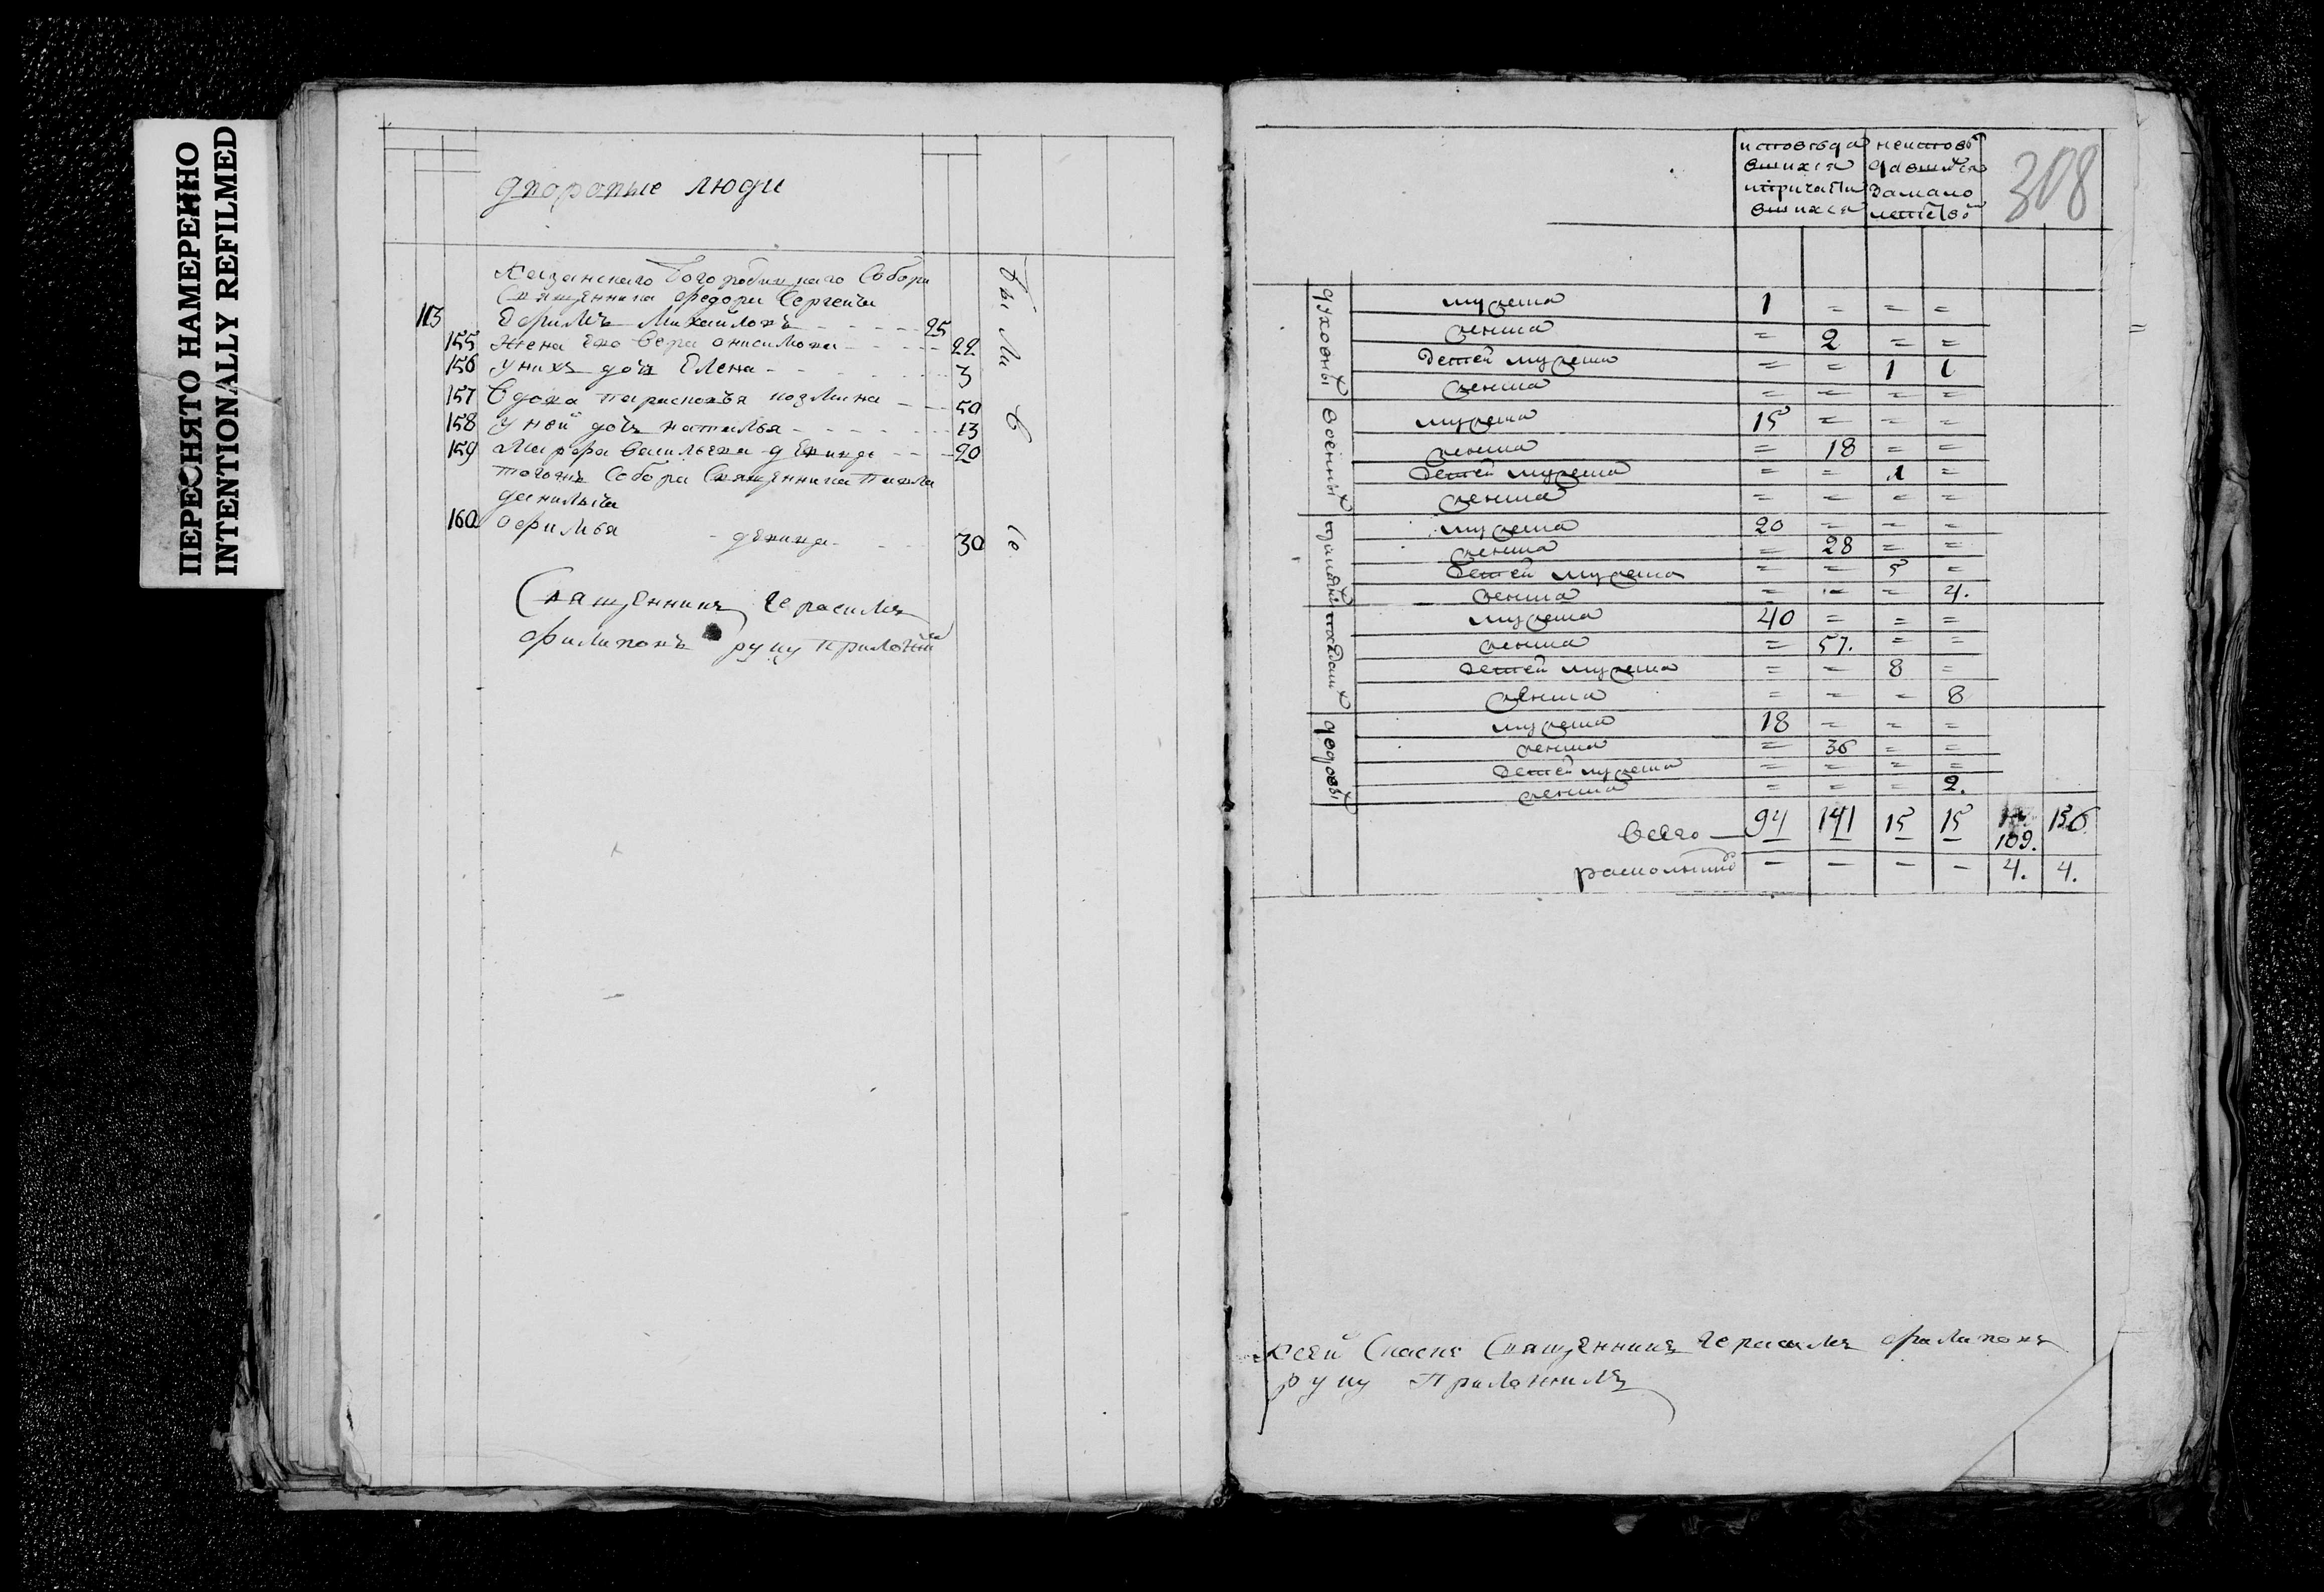 ПЕРЕСНЯТО НАМЕРЕННО
INTENTIONALLY REFILMED
дворовые люди
Казанскаго Богородицкаго Собора
Священника Федора Сергеича
113 Ефимъ Михайловъ 25
155 Жена Ево Вера онисимова 22
156 у нихъ дочь Елена 3
157 Вдова парасковья козмина 50
158 у ней дочь наталья 13
159 Марфа васильева девица 20
тогожъ Собора Священника Павла
данилыча
160 офимья девица 30
бы ли в се
Священникъ Герасимъ
Филиповъ руку приложил
308
исповеда
вшихся
ипричаща
вшихся
неиспове
давшихся
замало
летство
духовных
мужеска 1 = = =
женска = 2 = =
детей мужеска = = 1 1
женска = = = =
военных
мужеска 15 = = =
женска = 18 = =
детей мужеска = = 1 =
женска = = = =
мужеска 20 = = =
женска = 28 = =
детей мужеска = = 5 =
женска = = = 4.
посадских
мужеска 40 = = =
женска = 57. = =
детей мужеска = = 8 =
женска = = = 8
дворовых
мужеска 18 = = =
женска = 36 = =
детей мужеска = = = =
женска = = = 2.
Всего 94 141 15 15 109. 156
раскольников — — — — 4. 4.
Ксей Сказке Священникъ Герасимъ Филиповъ
руку Приложилъ